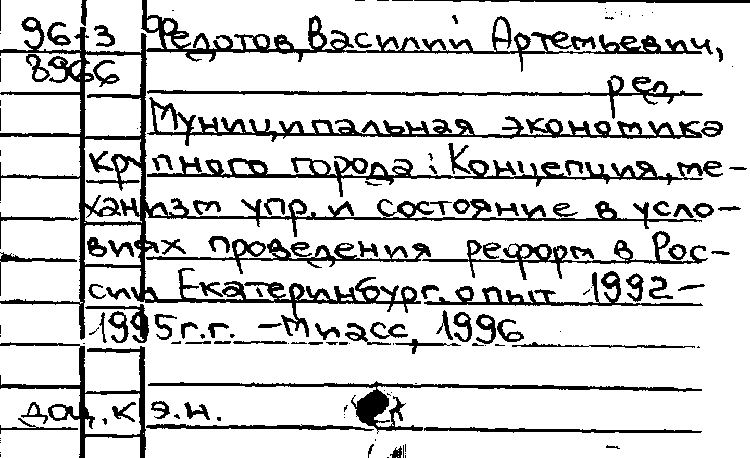 96-3 Федотов, Василий Артемьевич,
8966 ред.
Муниципальная экономика
крупного города: Концепция, ме-
ханизм упр. и состояние в усло-
виях проведения реформ в Рос-
сии Екатеринбург. опыт 1992-
1995 г.г. - Миасс, 1996.
доц., к э.н.